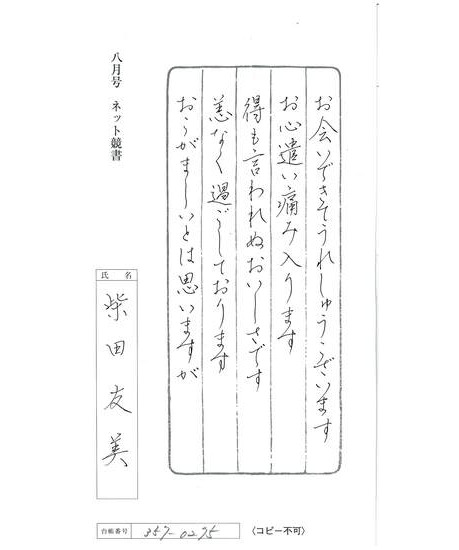 お会いできそうれしゅうございます
お心遣い痛み入ります
得も言われぬおいしさです
恙なく過ごしております
おこがましいとは思いますが
八月号 ネット競書
氏名
柴田友美
台帳番号 357-0275
〈コピー不可〉